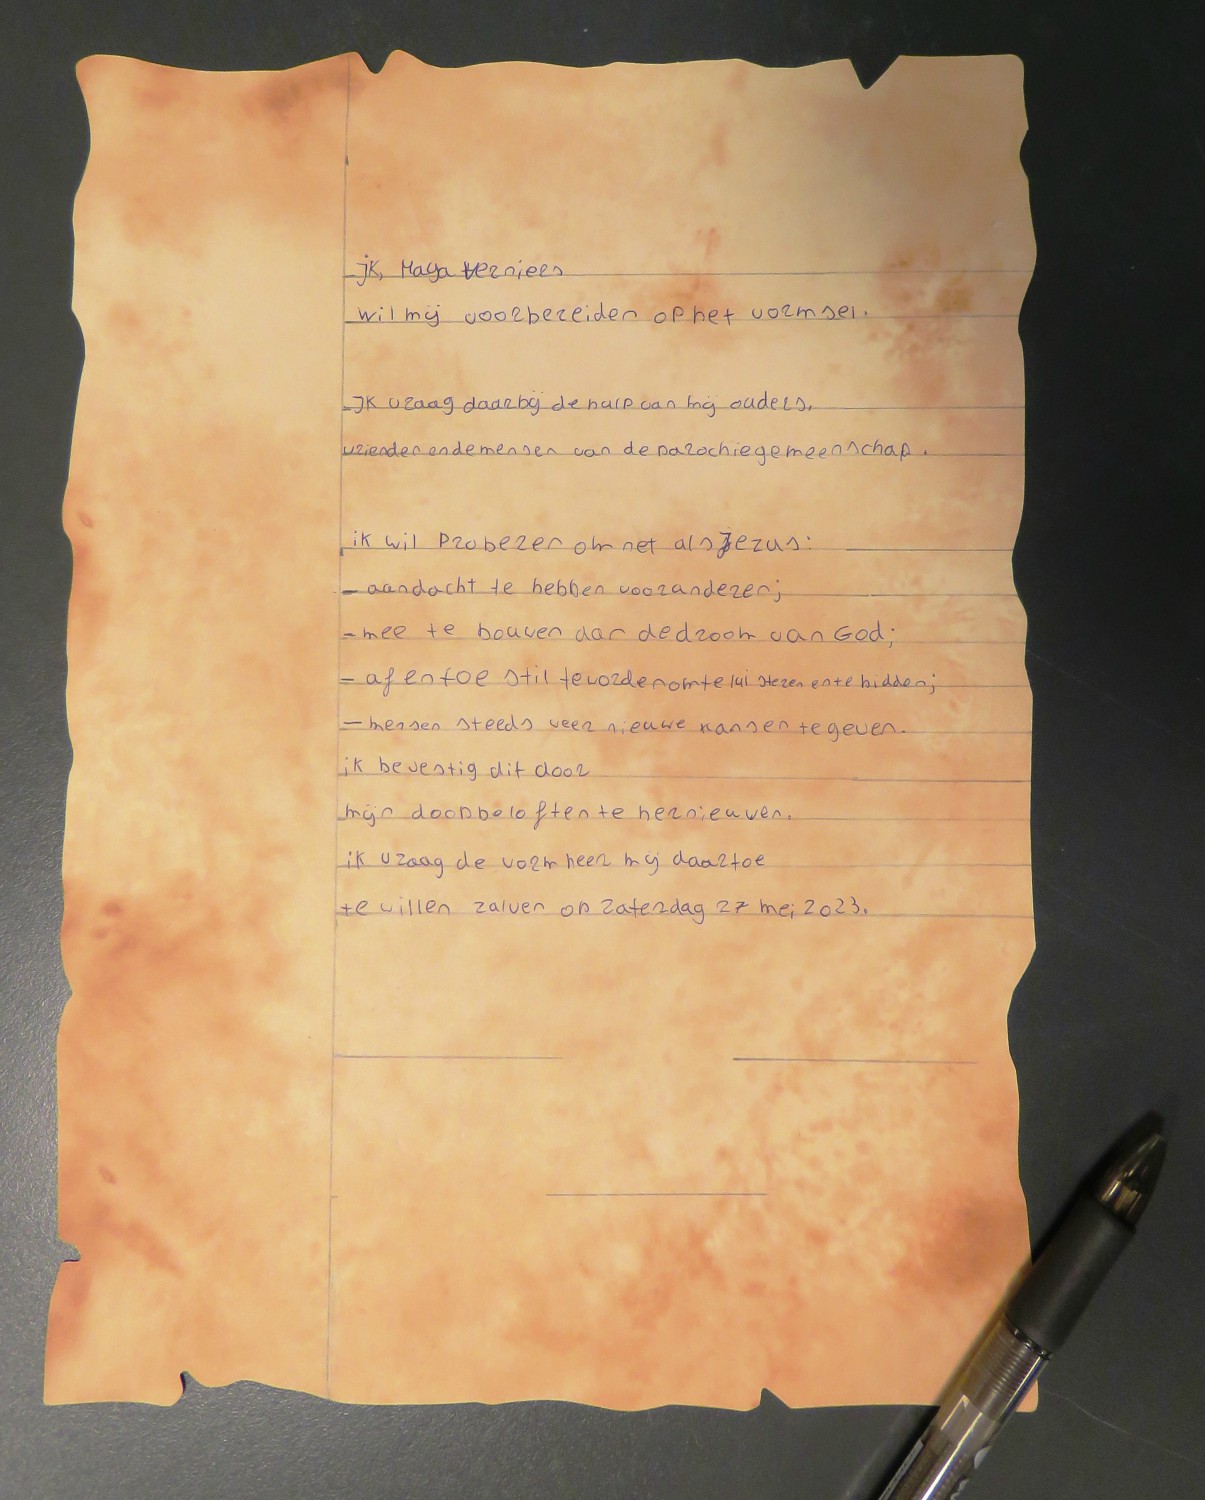 ik, Maya Verniers
wil mij voorbereiden op het vormsel.
Ik vraag daarbij de hulp van mij ouders,
vrienden en de mensen van de parochiegemeenschap.
ik wil proberen om net als Jezus:
- aandacht te hebben voor anderen;
- mee te bouwen aan de droom van God;
- af en toe stil te worden om te luisteren en te bidden;
- mensen steeds weer nieuwe kansen te geven.
ik bevestig dit door
mijn doopbeloften te hernieuwen.
ik vraag de vormheer mij daartoe
te willen zalven op zaterdag 27 mei 2023.